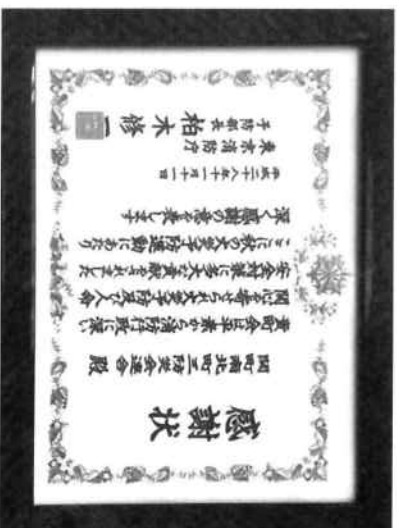 感謝状
関町南北町三防災会連合 殿
貴町会は平素から消防行政に深い
関心を寄せられ火災予防及び人命
安全対策に多大な貢献をされました
ここに秋の火災予防運動にあたり
深く感謝の意を表します
平成二十八年十一月十一日
東京消防庁
予防部長 柏木修一